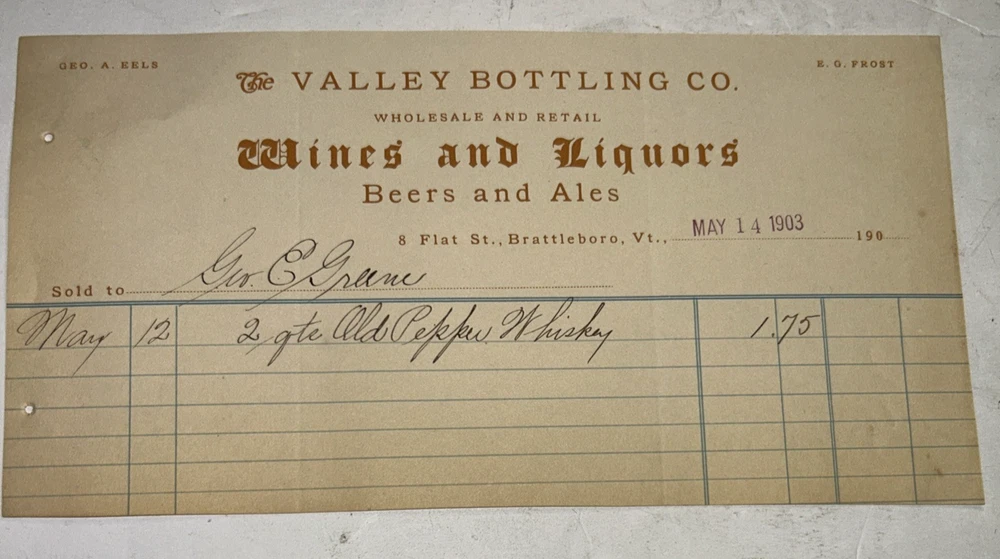 GEO. A. EELS
E. G. FROST
The VALLEY BOTTLING CO.
WHOLESALE AND RETAIL
Wines and Liquors
Beers and Ales
8 Flat St., Brattleboro, Vt., MAY 14 1903 190
Sold to Geo. E Greene
May 12 2 qts Old Pepper Whiskey 1.75